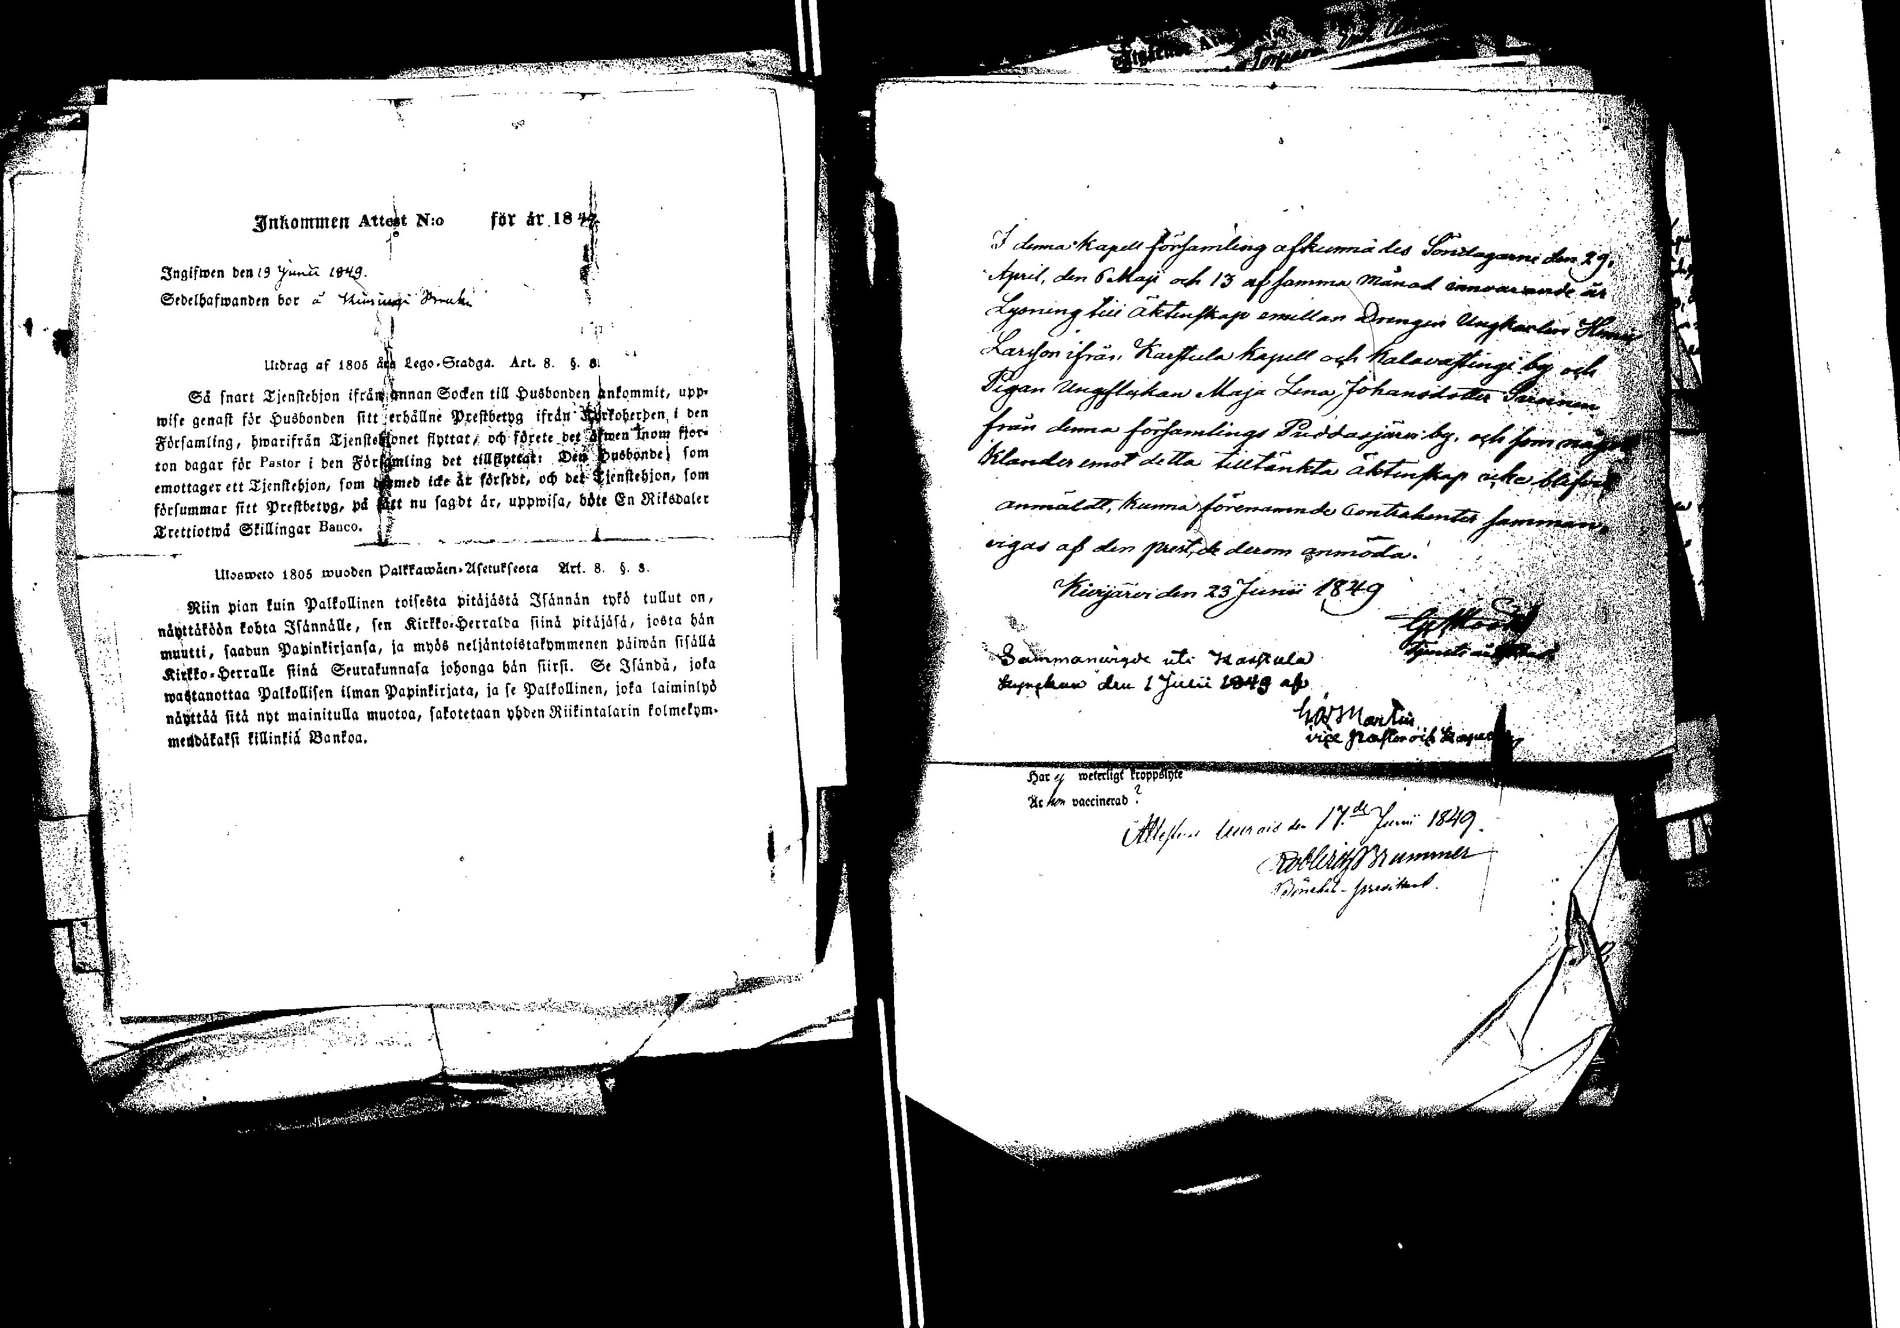 Inkommen Attest N:o för år 1849.
Ingifwen den 19 Junii 1849.
Sedelhafwanden bor å
Utdrag af 1805 års Lego-Stadga. Art. 8. §. 8.
Så snart Tjenstehjon ifrån annan Socken till Husbonden ankommit, upp-
wise genast för Husbonden sitt erhållne Prestbetyg ifrån Kyrkoherden i den
Församling, hwarifrån Tjenstehjonet flyttat, och förete det äfwen inom fjor-
ton dagar för Pastor i den Församling det tillflyttat: Den Husbonde, som
emottager ett Tjenstehjon, som dermed icke är försedt, och det Tjenstehjon, som
försummar sitt Prestbetyg, på sätt nu sagdt är, uppwisa, böte En Riksdaler
Trettiotwå Skillingar Banco.
Ulosweto 1805 wuoden Palkkawäen-Asetuksesta Art. 8. §. 8.
Niin pian kuin Palkollinen toisesta pitäjästä Isännän tykö tullut on,
näyttäköön kohta Isännälle, sen Kirkko-Herralda siinä pitäjäsä, josta hän
muutti, saadun Papinkirjansa, ja myös neljäntoistakymmenen päiwän sisällä
Kirkko-Herralle siinä Seurakunnasa johonga hän siirsi. Se Isändä, joka
wastanottaa Palkollisen ilman Papinkirjata, ja se Palkollinen, joka laiminlyö
näyttää sitä nyt mainitulla muotoa, sakotetaan yhden Riikintalarin kolmekym-
mendäkaksi killinkiä Bankoa.
I denna Kapell församling afkunnades Söndagarne den 29.
April, den 6 Maji och 13 af samma Månad innevarande år
Lysning till äktenskap emellan Drengen Ungkarlen
Larsson ifrån Karstula Kapell och Kalavastingi by och
Pigan Ungflickan Maja Lena Johansdotter
från denna församlings Puddasjärvi by, och som något
Klander emot detta tilltänkta äktenskap icke blifvit
anmäldt, kunna förenämnde Contrahenter samman-
vigas af den prest, de derom anmoda.
Kivijärvi den 23 Junii 1849
Sammanvigde uti Karstula
Kyrckan den 1 Julii 1849 af
Martin
vice pastor
Har ej weterligt kroppslyte
Är hon vaccinerad?
den 17.de Junii 1849.
Brummer